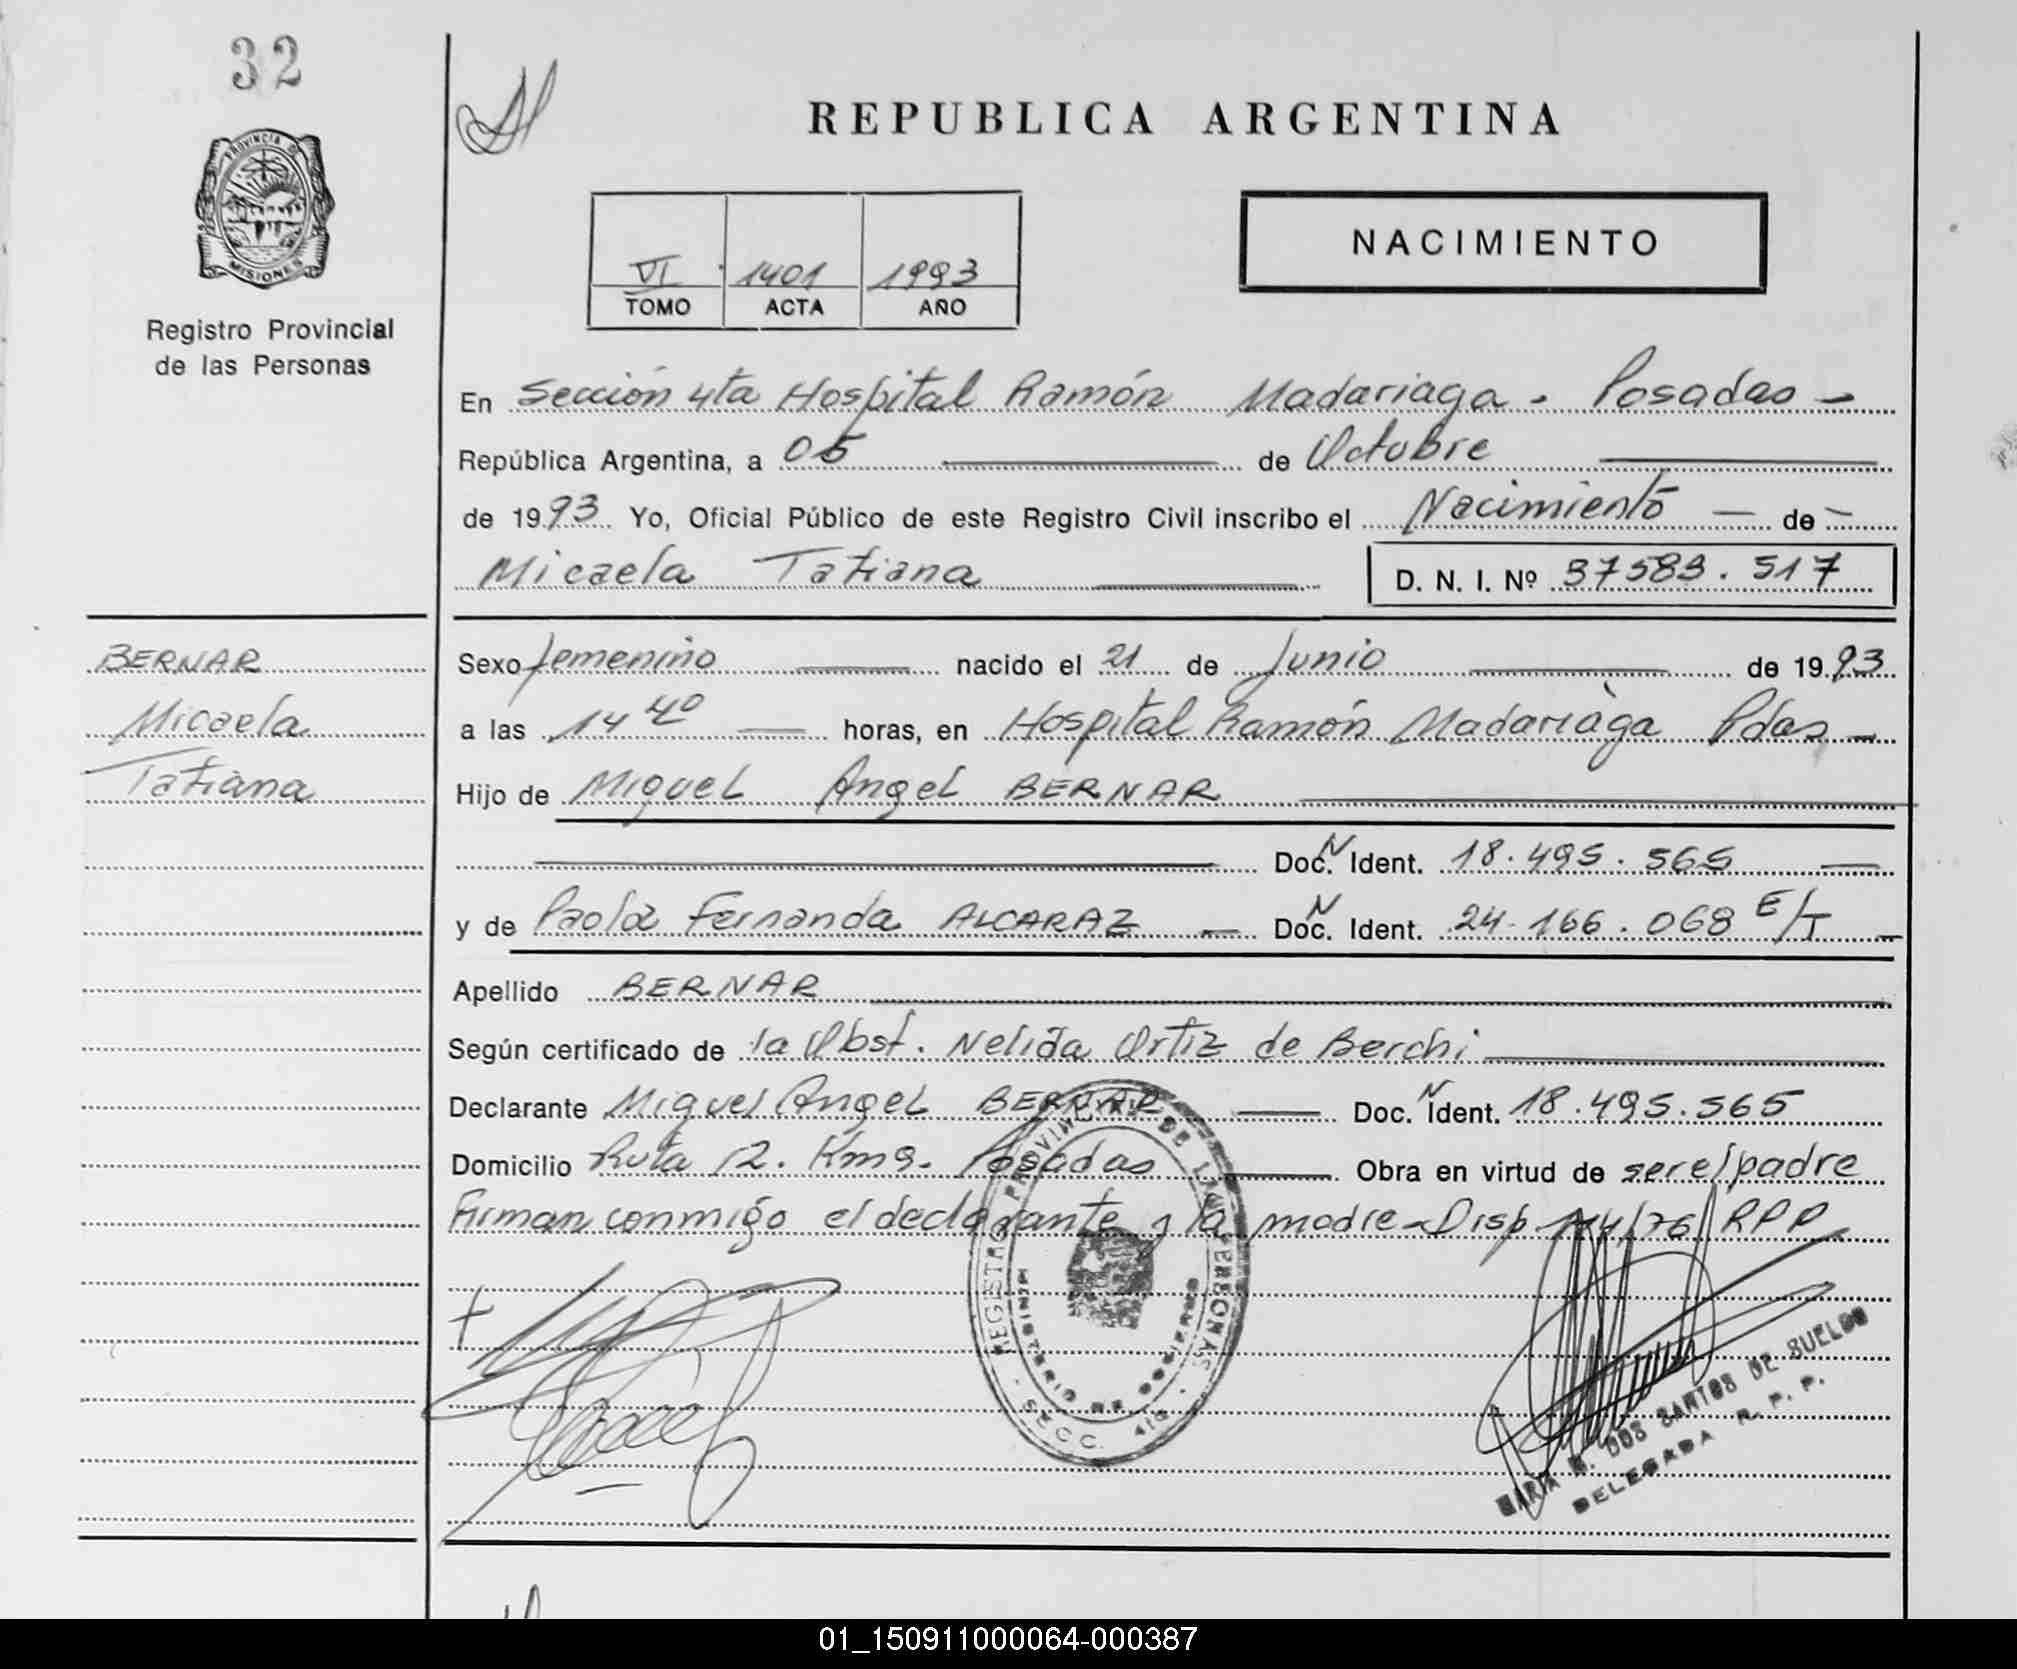 32
PROVINCIA DE
MISIONES
Registro Provincial
de las Personas
REPUBLICA ARGENTINA
VI 1401 1993
TOMO ACTA AÑO
NACIMIENTO
En Sección 4ta Hospital Ramón Madariaga - Posadas -
República Argentina, a 05 de Octubre
de 1993 Yo, Oficial Público de este Registro Civil inscribo el Nacimiento - de -
Micaela Tatiana D. N. I. Nº 37583.517
BERNAR
Micaela
Tatiana
Sexo femenino nacido el 21 de Junio de 1993
a las 14 40 horas, en Hospital Ramón Madariaga Pdas -
Hijo de Miguel Angel BERNAR
Doc. N Ident. 18.495.565
y de Paola Fernanda ALCARAZ - Doc. N Ident. 24.166.068 E/T -
Apellido BERNAR
Según certificado de la Obst. Nelida Ortiz de Berchi
Declarante Miguel Angel BERNAR Doc. N Ident. 18.495.565
Domicilio Ruta 12. Km9. Posadas Obra en virtud de ser el padre
Firman conmigo el declarante y la madre - Disp /76/RPP
REGISTRO PROVINCIAL DE LAS PERSONAS
MINISTERIO DE GOBIERNO
SECC. 4ta
MARIA DOS SANTOS DE SUELDO
DELEGADA R. P. P.
01_150911000064-000387